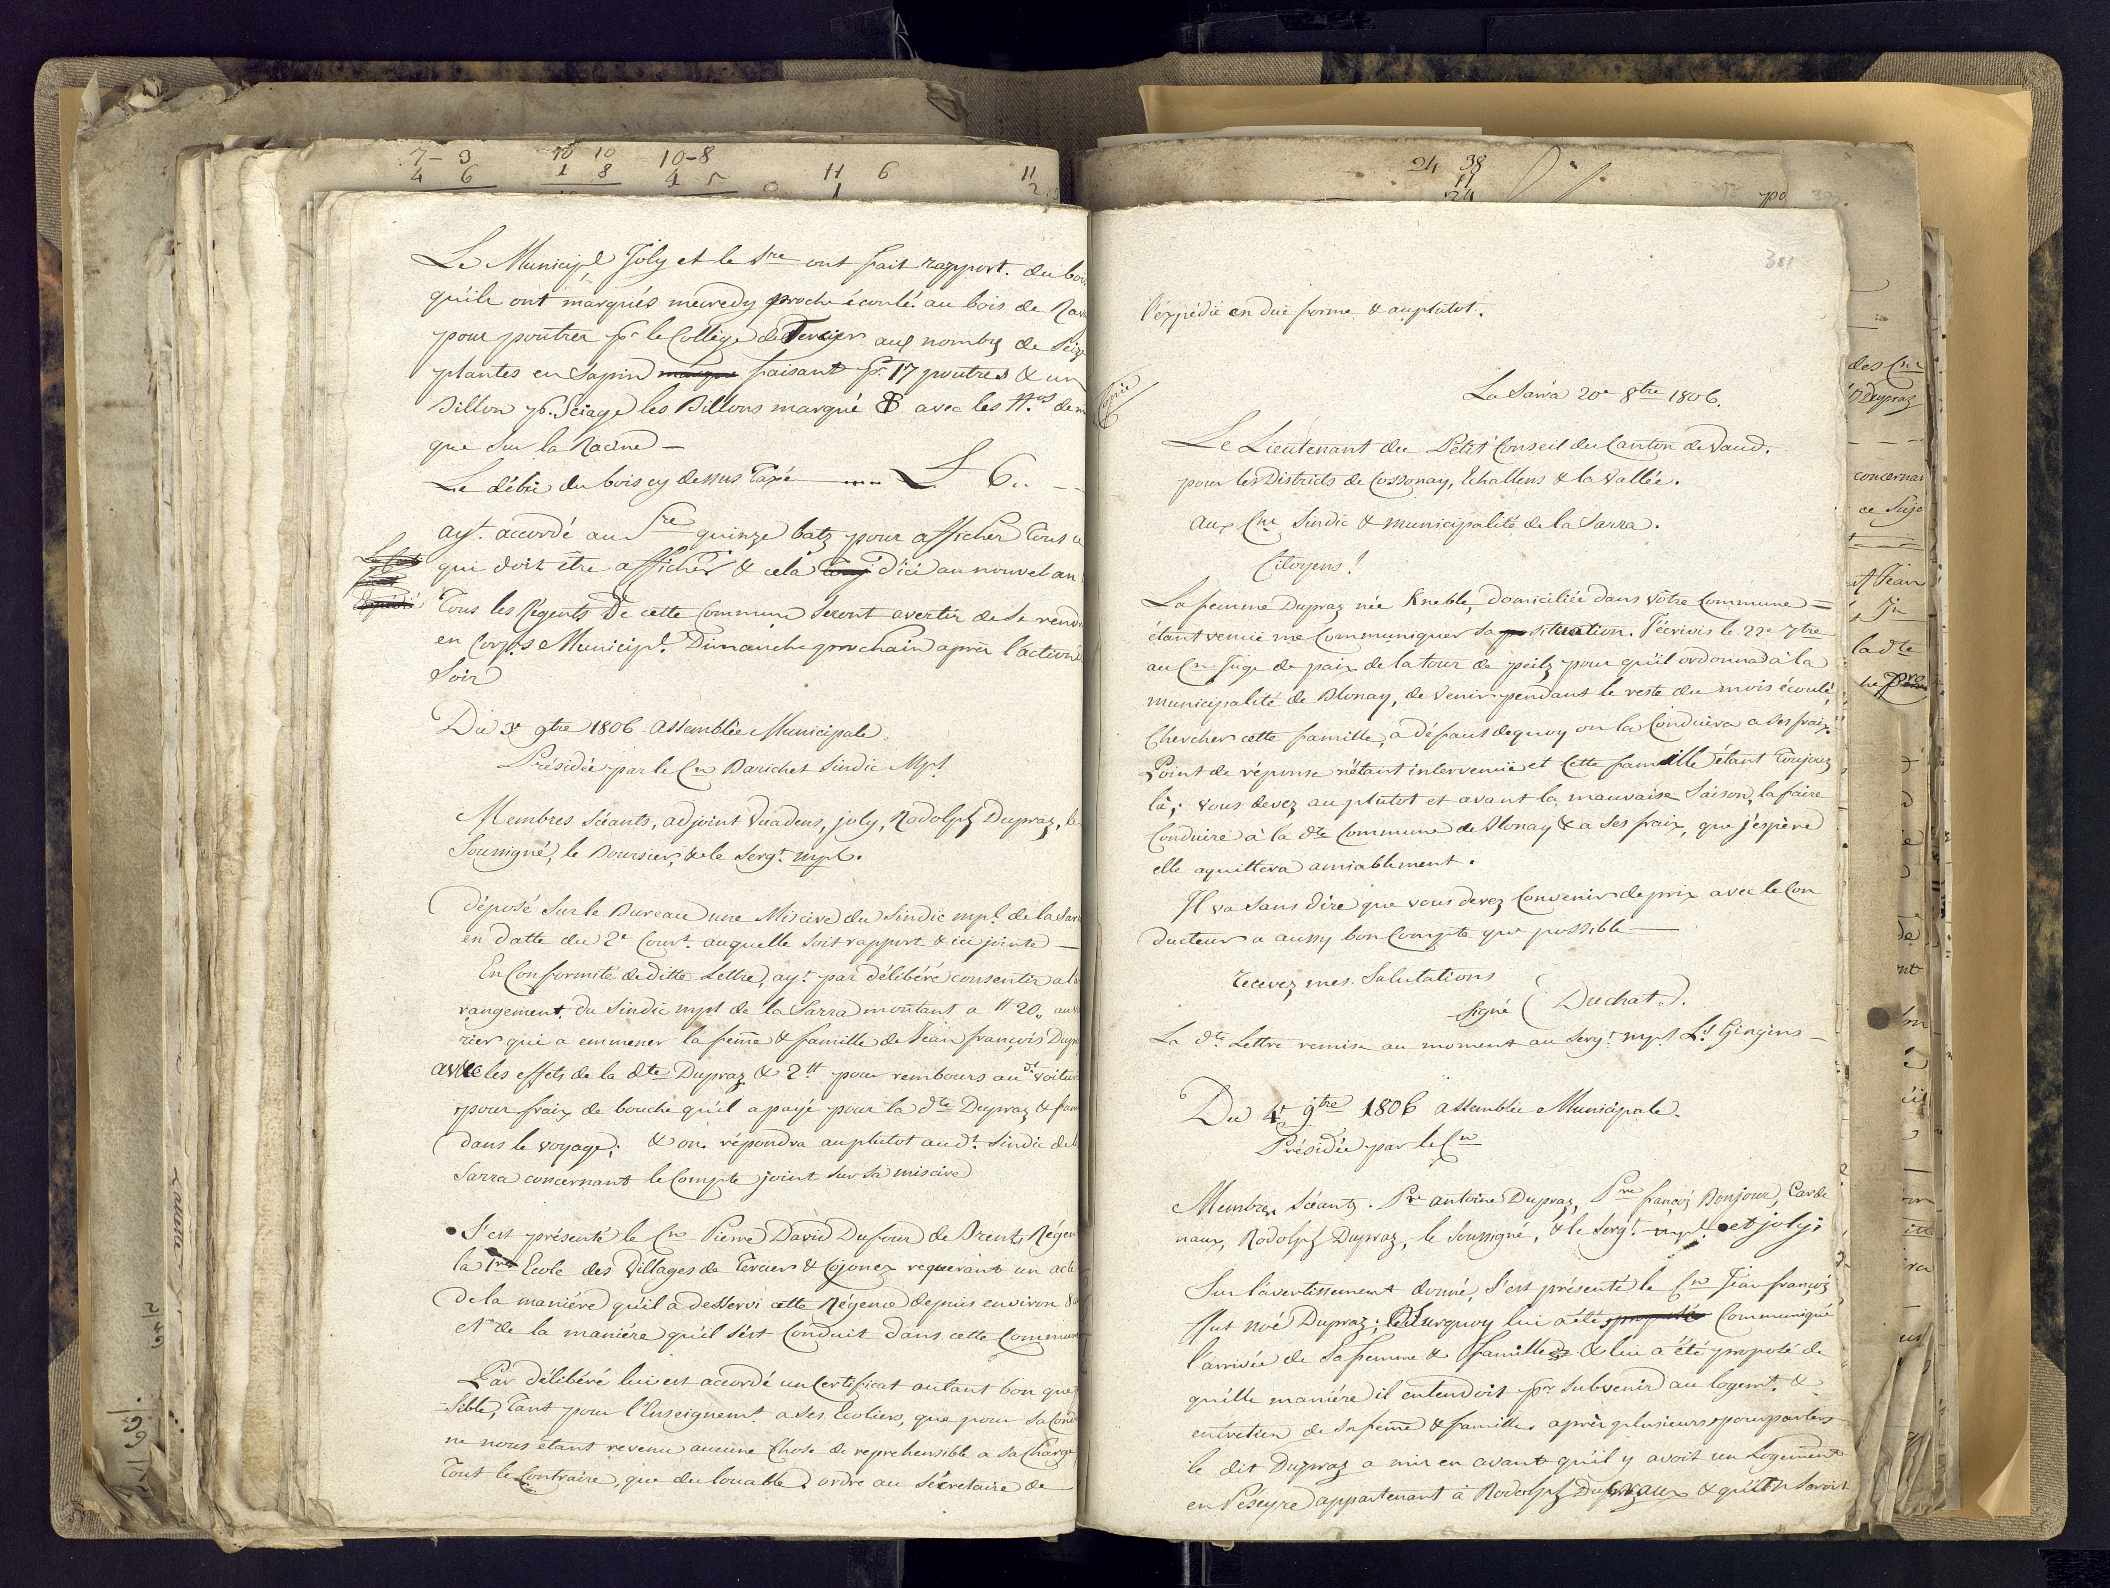 7-3 10 10 10-8 11 6 11
4 6 1 8 4 5 1 2
Le Municipl Joly et le Sre ont fait rapport. du bois
qu'ils ont marqués mecredy proche écoulé au bois de
pour poutres pr le College de Tercier aux nombre de Seize
plantes en Sapin faisant pr 17 poutres & un
Billon pr Sciage les Billons marqué avec les de
que sur la Racine —
Le débri du bois cy dessus Taxé ---- L 6,, — —
ayt. accordé au Sre quinze batz pour afficher Tous ce
qui doit être afficher & cela d'ici au nouvel an
Tous les Régents De cette Commune Seront avertir de Se rendre
en Corps Municipl. Dimanche prochain après l'action
Soir
Du 3e 9bre 1806 assemblée Municipale
Présidée par le Cn Barichet Sindic Mpl
Membres Séants, adjoint Vuadens, joly, Rodolph Dupraz, le
Soussigné, le Boursier, & le Sergt. mpl.
déposé Sur le Bureau une Miscive du Sindic mpl. de la Sarra
en datte du 2e Court. auquelle Soit rapport & ici jointe —
En Conformité de ditte Lettre, ayt. par délibéré consentir a l'a
rangement. du Sindic mpl de la Sarra montant a tt 20,, au
rier qui a emmener la feme & famille de Jean françois Dupraz
avec les effets de la dte Dupraz & 2 tt pour rembours au dt voitur
pour fraix de bouche qu'il a payé pour la dte Dupraz & fam
dans le voyage; & on répondra au plutot au dt. Sindic de la
Sarra concernant le Compte joint Sur Sa miscive
S'est présenté le Cn Pierre David Dufour de Brent, Régent
la 1re Ecole des Villages de Tercier & Cojonex requerant un acte
de la manière qu'il a desservi cette Régence depuis environ 8
et de la manière qu'il s'est Conduit dans cette Commune
Par délibéré lui est accordé un Certificat autant bon que
-sible, Tant pour l'Enseignemt. a Ses Ecoliers, que pour Sa Cond
ne nous étant revenu aucune Chose de reprehensible a Sa Charge
Tout le Contraire, que du louable. ordre au Sécretaire de
24 38
11
24
381
l'éxpédie en due forme & au plutot.
Copie
La Sarra 20e 8bre 1806.
Le Lieutenant du Petit Conseil du Canton de Vaud.
pour les Districts de Cossonay, Echallens & la Vallée.
Aux Cns Sindic & municipalité de la Sarra.
Citoyens!
La femme Dupraz née Kneble, domiciliée dans vôtre Commune =
étant venue me Communiquer Sa situation. J'écrivis le 22e 7bre
au Cn Juge de paix de la tour de peilz pour qu'il ordonnad à la
municipalité de Blonay, de venir pendant le reste du mois écoulé,
Chercher cette famille, à défaut de quoy on la Conduira a Ses fraix.
Point de réponse n'étant intervenüe et Cette famille étant Toujours
là; vous devez au plutot et avant la mauvaise Saison, la faire
Conduire à la dte Commune de Blonay & a Ses fraix, que j'espère
elle aquittera amiablement.
Il va Sans dire que vous devez Convenir de prix avec le Con
ducteur a aussy bon Compte que possible —
recevez mes Salutations
Signé ( Duchat.).
La dte Lettre remise au moment au Sergt. mpl Ls Gingins —
Du 4e 9bre 1806 assemblée Municipale.
Présidée par le Cn
Membres Séants. Pre antoine Dupraz, Pre françois Bonjour, Carde
naux, Rodolph Dupraz, le Soussigné, & le Sergt. mpl. et joly;
Sur l'avertissement donné, S'est présenté le Cn Jean françois
ffut noé Dupraz; Surquoy lui a été Communiqué
l'arrivée de Sa femme & famille & lui a été proposé de
qu'élle manière il entendoit pr Subvenir au logemt. &
entretien de Sa feme & famille. après plusieurs pourparlers
le dit Dupraz a mis en avant qu'il y avoit un Logement
en Péseyre appartenant à Rodolph Dupraz & qu'il Seroit
des Cns
Dupraz
ce Suje
Jean
la dte